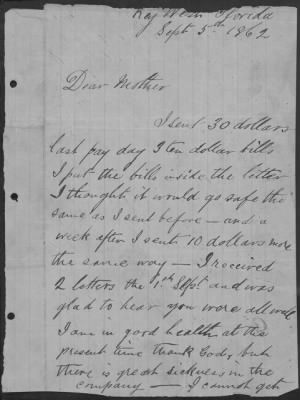 Key West Florida
Sept 5th 1862
Dear Mother
I sent 30 dollars
last pay day 3 ten dollar bills
I put the bills inside the letter
I thought it would go safe the
same as I sent before — and a
week after I sent 10 dollars more
the same way — I received
2 letters the 1st Sept and was
glad to hear you were all well
I am in good health at the
present time thank God, but
there is great sickness in the
company — I cannot get